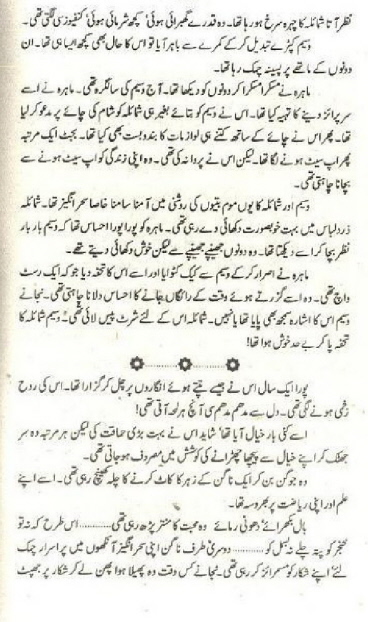 نظر آتا شائلہ کا چہرہ سرخ ہو رہا تھا۔ وہ قدرے گھبرائی ہوئی‘ کچھ شرمائی ہوئی‘ کنفیوز سی لگتی تھی۔
وسیم کپڑے تبدیل کر کے کمرے سے باہر آیا تو اس کا حال بھی کچھ ایسا ہی تھا۔ ان
دونوں کے ماتھے پر پسینہ چمک رہا تھا۔
ماہرہ نے مسکرا مسکرا کر دونوں کو دیکھا تھا۔ آج وسیم کی سالگرہ تھی۔ ماہرہ نے اسے
سرپرائز دینے کا تہیہ کیا تھا۔ اس نے وسیم کو بتائے بغیر ہی شائلہ کو شام کی چائے پر مدعو کر لیا
تھا۔ پھر اس نے چائے کے ساتھ کتنے ہی لوازمات کا بندوبست بھی کیا تھا۔ بجٹ ایک مرتبہ
پھر اپ سیٹ ہونے لگا تھا۔ لیکن اس نے پروا نہ کی تھی۔ وہ اپنی زندگی کو اپ سیٹ ہونے سے
بچانا چاہتی تھی۔
وسیم اور شائلہ کا یوں موم بتیوں کی روشنی میں آمنا سامنا خاصا سحر انگیز تھا۔ شائلہ
زرد لباس میں بہت خوبصورت دکھائی دے رہی تھی۔ ماہرہ کو پورا پورا احساس تھا کہ وسیم بار بار
نظر بچا کر اسے دیکھتا تھا۔ وہ دونوں جھینپے جھینپے سے لیکن خوش دکھائی دیتے تھے۔
ماہرہ نے اصرار کر کے وسیم سے کیک کٹوایا اور اسے اس کا تحفہ دیا جو کہ ایک رسٹ
واچ تھی۔ وہ اسے گزرتے ہوئے وقت کے رائگاں جانے کا احساس دلانا چاہتی تھی۔ نجانے
وسیم اس کا اشارہ سمجھ بھی پایا تھا یا نہیں۔ شائلہ اس کے لئے شرٹ پیس لائی تھی۔ وسیم شائلہ کا
تحفہ پا کر بے حد خوش ہوا تھا!
پورا ایک سال اس نے جیسے تپتے ہوئے انگاروں پر چل کر گزارا تھا۔ اس کی روح
زخمی ہونے لگی تھی۔ دل سے مدھم مدھم سی آنچ ہر لمحہ آتی تھی!
اسے کئی بار خیال آیا تھا‘ شاید اس نے بہت بڑی حماقت کی لیکن ہر مرتبہ وہ سر
جھٹک کر اپنے خیال سے پیچھا چھڑانے کی کوشش میں مصروف ہو جاتی تھی۔
وہ جوگن بن کر ایک ناگن کے زہر کا کاٹ کرنے کا چلہ کھینچ رہی تھی۔ اسے اپنے
علم اور اپنی ریاضت پر بھروسہ تھا۔
بال بکھرائے‘ دھونی رمائے وہ محبت کا منتر پڑھ رہی تھی............ اس طرح کہ نہ تو
خنجر کو پتہ چلے نہ بسمل کو ............ دوسری طرف ناگن اپنی سحر انگیز آنکھوں میں پراسرار چمک
لئے‘ اپنے شکار کو مسمرائز کر رہی تھی۔ نجانے کس وقت وہ پھیلا ہوا پھن لے کر شکار پر جھپٹ